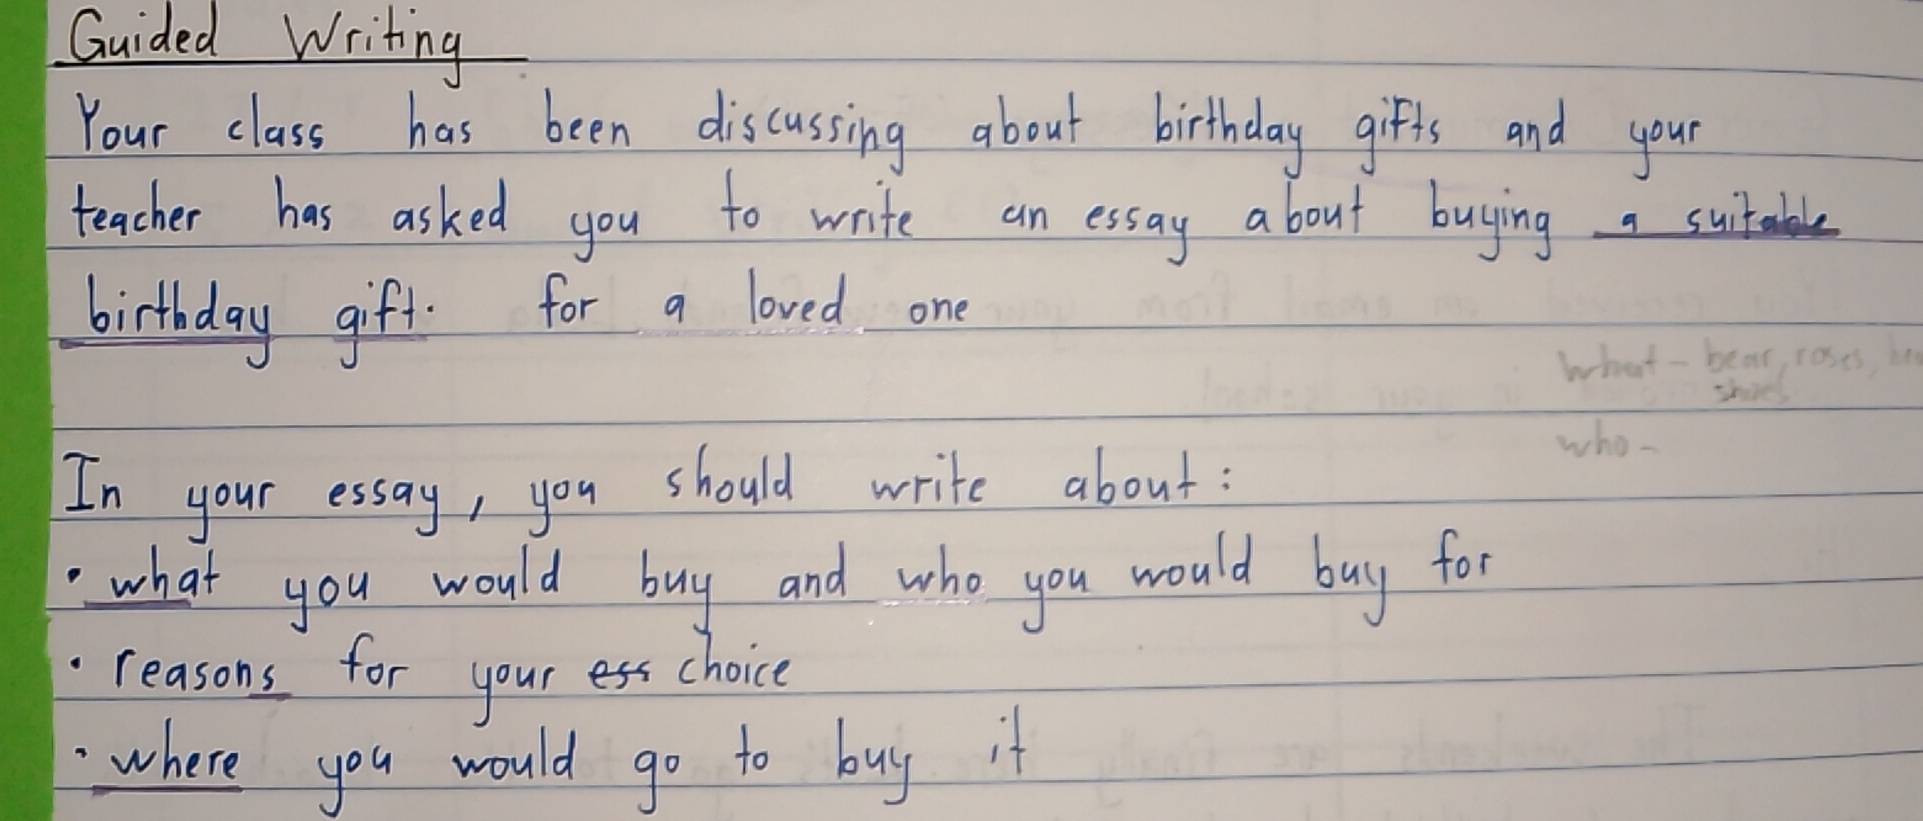 Guided Writing
Your class has been discussing about birthday gifts and your
teacher has asked you to write an essay about buying a suitable
birthday gift. for a loved one
what - bear, roses,
shoes
who -
In your essay, you should write about:
• what you would buy and who you would buy for
• reasons for your ess choice
• where you would go to buy it